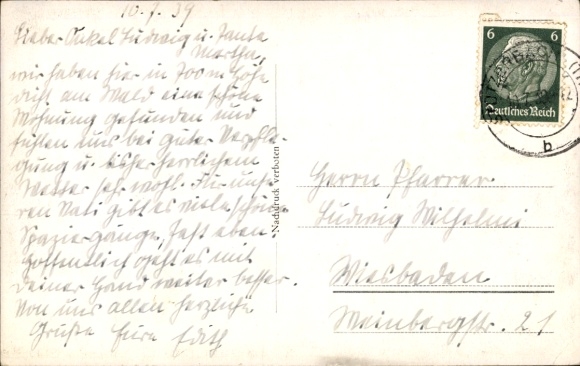 10.7.39
Lieber Onkel Ludwig u. Tante
Martha,
wir haben hier in 700 m Höhe
dicht am Wald eine schöne
Wohnung gefunden und
fühlen uns bei guter Verpfle-
gung u. bisher herrlichem
Wetter sehr wohl. Für unse-
ren Vati gibt es viele schöne
Spaziergänge, fast eben.
Hoffentlich geht es mit
deiner Hand weiter besser.
Von uns allen herzliche
Grüße Eure Edith
Nachdruck verboten
6 6
Deutsches Reich
b
Herrn Pfarrer
Ludwig Wilhelmi
Wiesbaden
Weinbergstr. 21